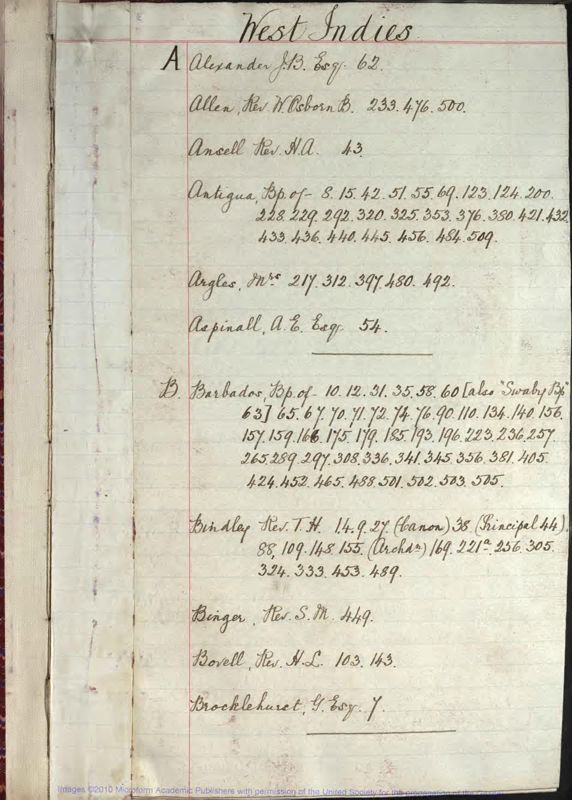 West Indies
A Alexander J.B. Esq. 62.
Allen, Rev. W. Osborn B. 233. 476. 500.
Ansell Rev. H.A. 43
Antigua, Bp. of - 8. 15. 42. 51. 55. 69. 123. 124. 200.
228. 229. 292. 320. 325. 353. 376. 380. 421. 432
433. 436. 440. 445. 456. 484. 509.
Argles, Mrs 217. 312. 397. 480. 492.
Aspinall, A.E. Esq. 54.
B. Barbados, Bp. of - 10. 12. 31. 35. 58. 60 [also "Swaby Bp"
63] 65. 67. 70. 71. 72. 74. 76. 90. 110. 134. 140 156.
157. 159. 166 175. 179. 185. 193. 196. 223. 236. 257.
265. 289. 297. 308. 336. 341. 345. 356. 381. 405.
424. 452. 465. 488. 501. 502. 503. 505.
Bindley Rev. T.H. 1. 4. 9. 27 (Canon) 38 (Principal 44).
88, 109. 148. 155. (Archdn) 169. 221a. 256. 305.
324. 333. 453. 489.
Binger, Rev. S.M. 449.
Bovell, Rev. H.L. 103. 143.
Brocklehurst, G. Esq. 7.
Images ©2010 Microform Academic Publishers with permission of the United Society for the propagation of the Gospel